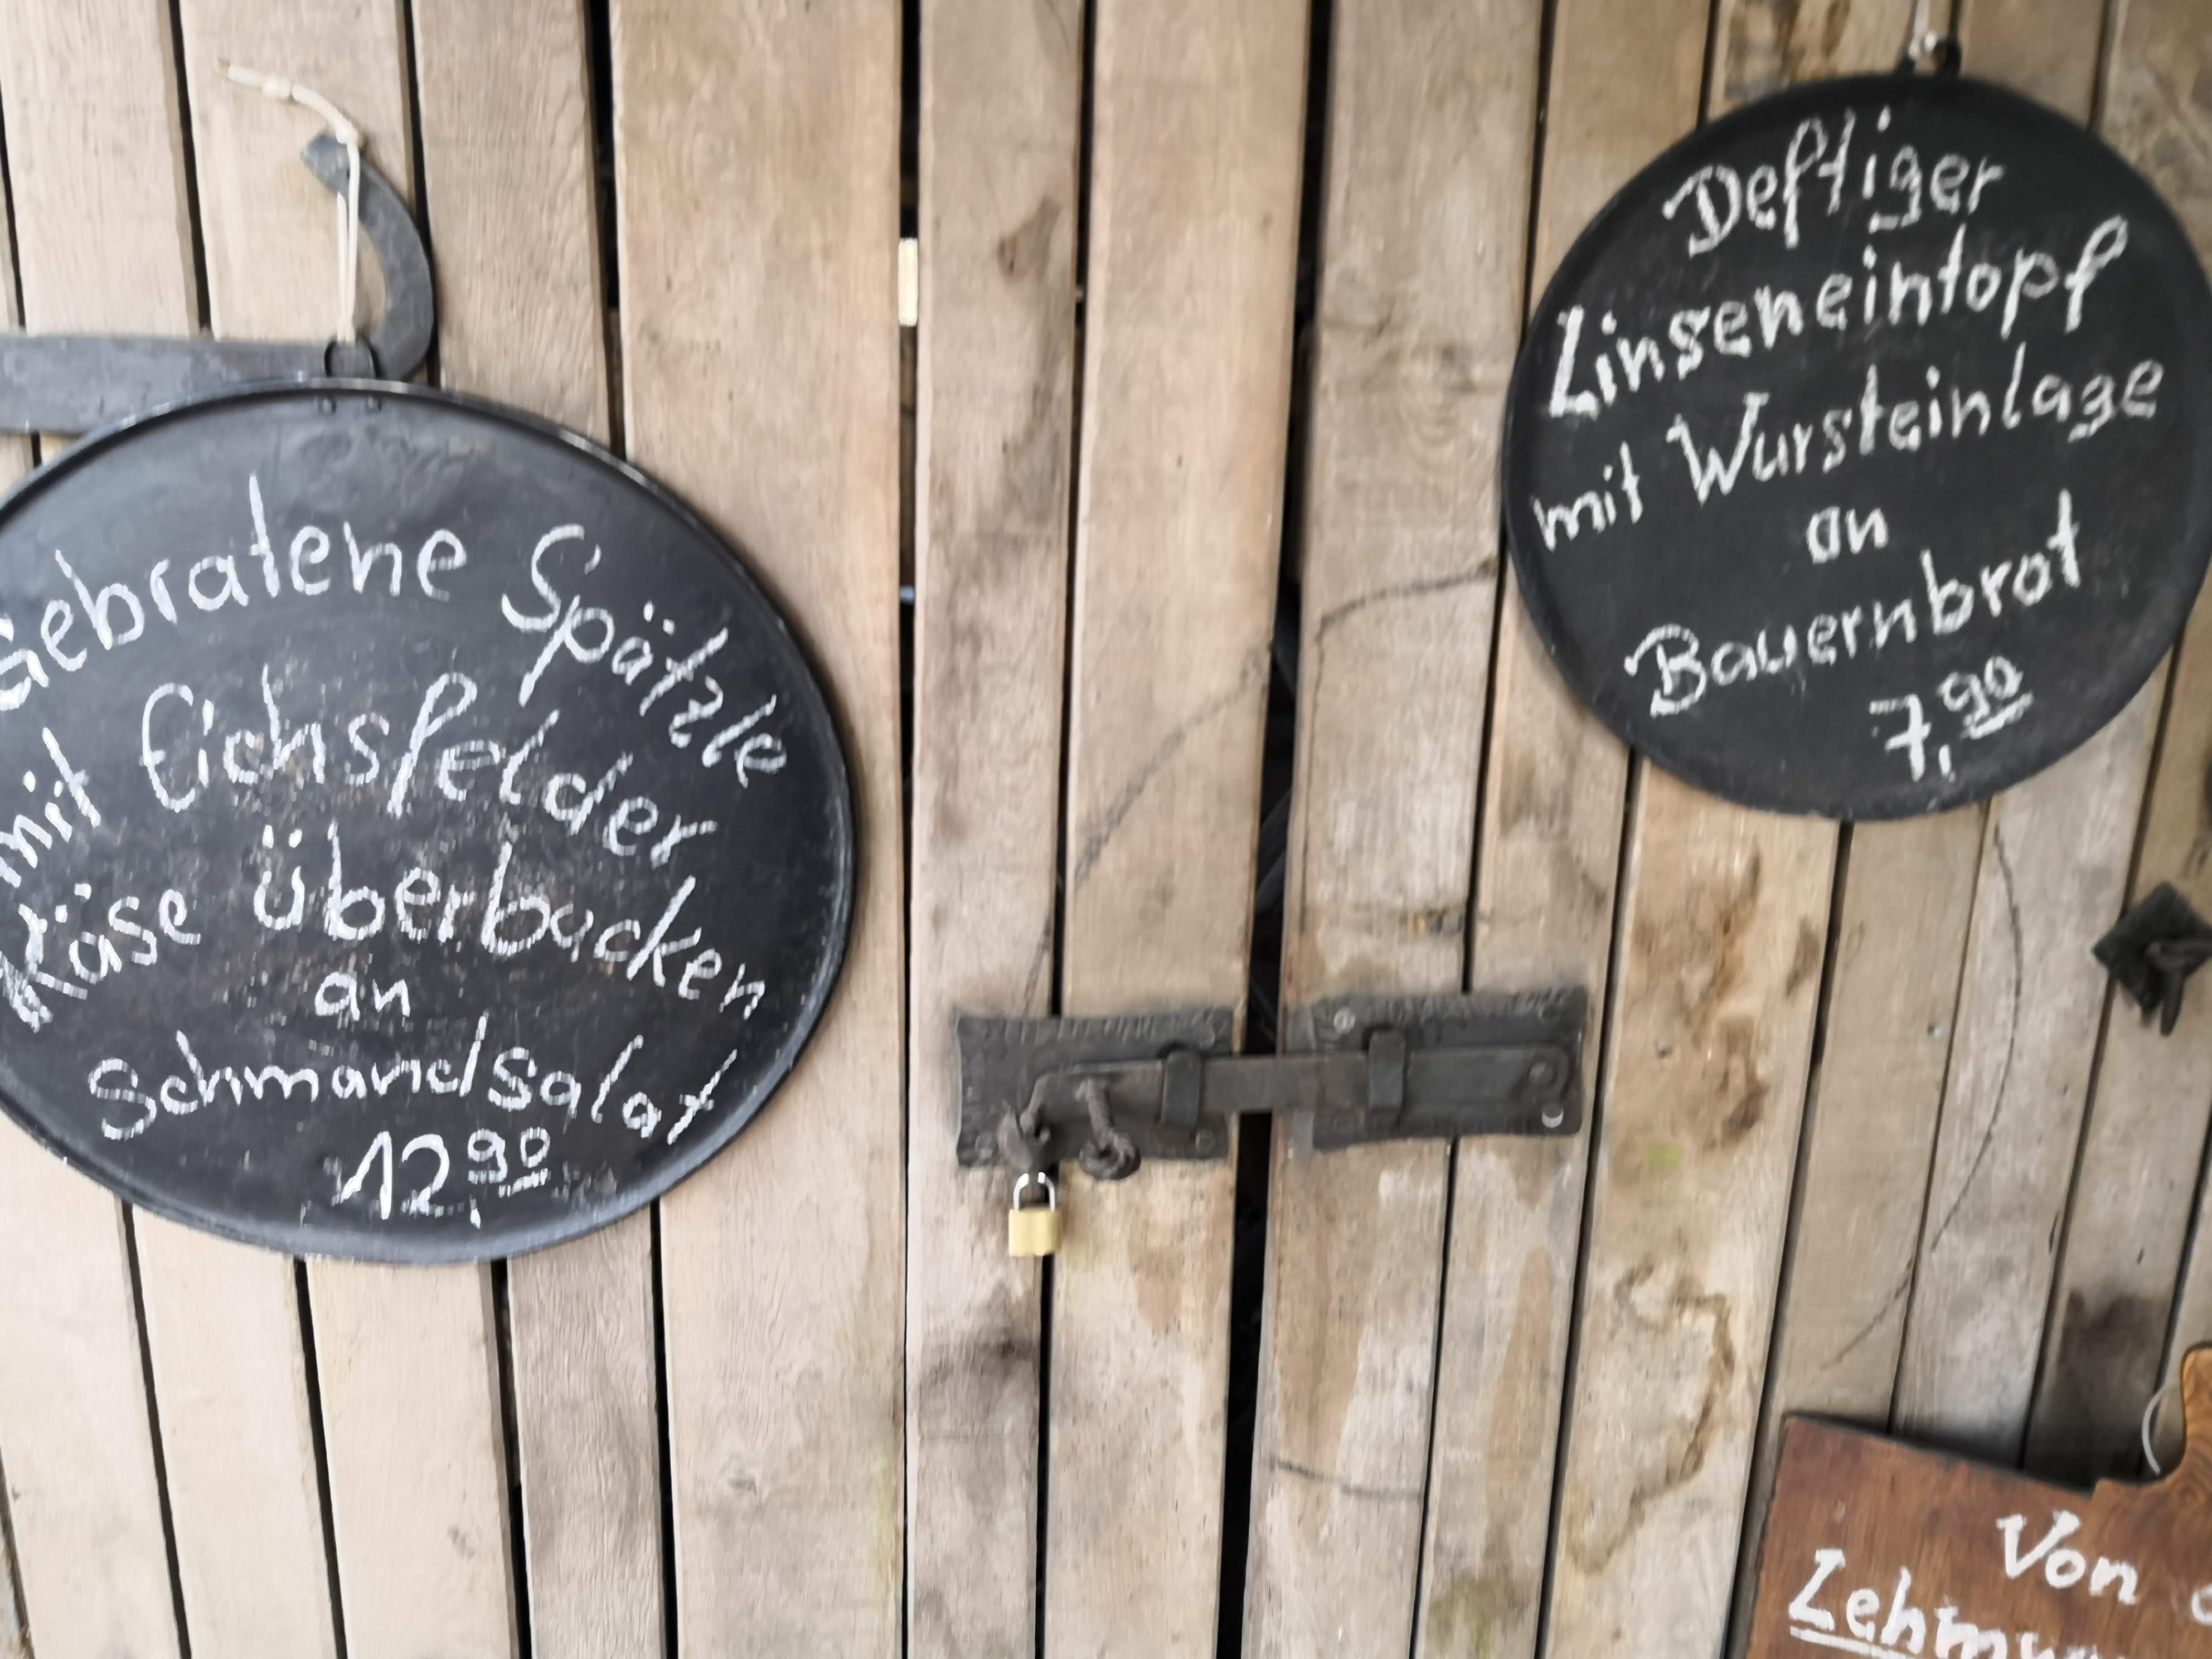 Gebratene Spätzle
mit Eichsfelder
Käse überbacken
an
Schmandsalat
12,90
Deftiger
Linseneintopf
mit Wursteinlage
an
Bauernbrot
7,90
Von